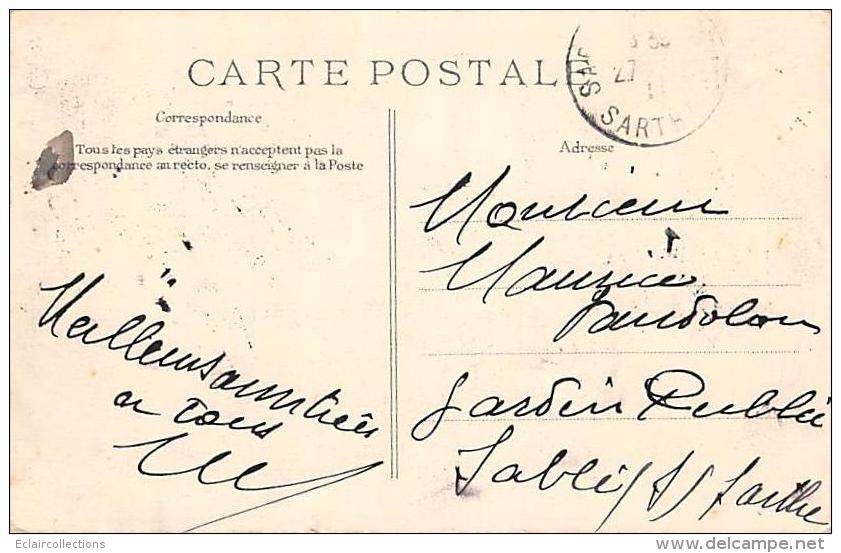 CARTE POSTALE
SARTHE
27
Correspondance
Tous les pays étrangers n'acceptent pas la
correspondance au recto, se renseigner à la Poste
Adresse
Monsieur
Maurice
Jardin Public
Sablé s/ Sarthe
Meilleurs amitiés
a tous
Eclaircollections
www.delcampe.net